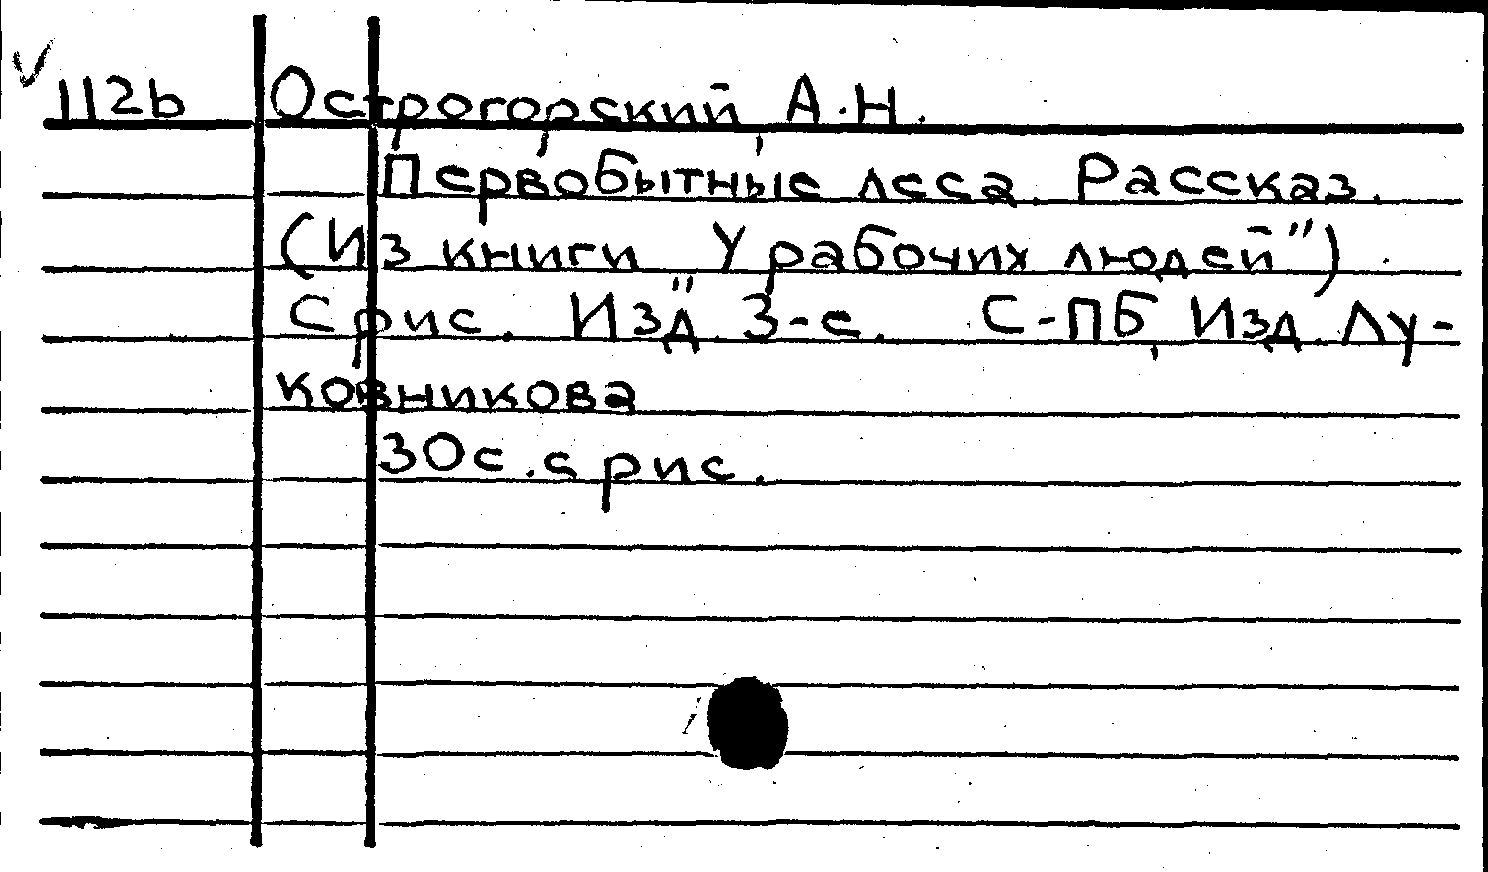 112b Острогорский, А.Н.
Первобытные леса. Рассказ.
(Из книги „У рабочих людей")
С рис. Изд. 3-е. С-ПБ, Изд. Лу-
ковникова
30с. с рис.